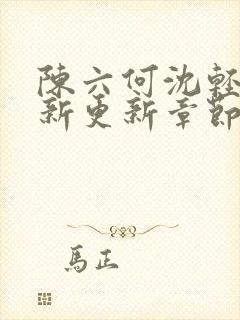 陳六何沈輕
新更新章節
馬正